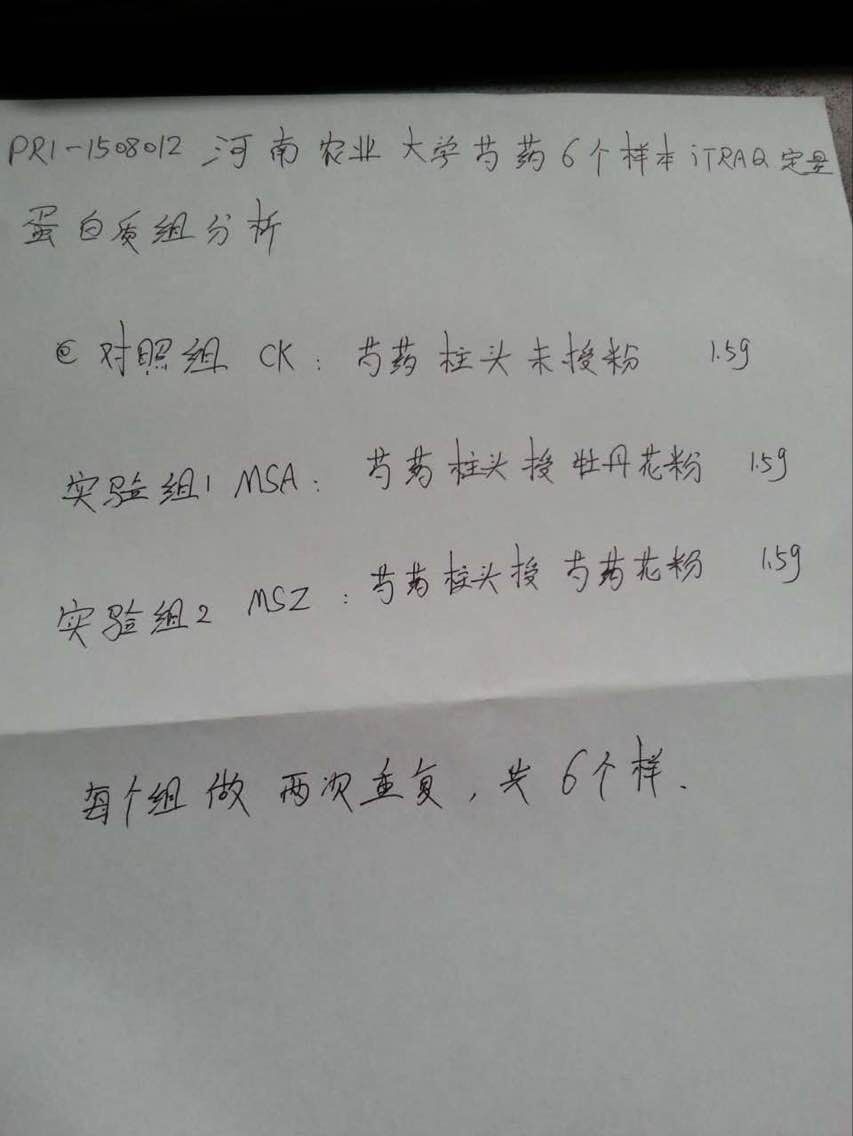 PR1-1508012 河南农业大学芍药6个样本iTRAQ定量
蛋白质组分析
对照组 CK: 芍药柱头未授粉 1.5g
实验组1 MSA: 芍药柱头授牡丹花粉 1.5g
实验组2 MSZ: 芍药柱头授芍药花粉 1.5g
每个组做两次重复,共6个样.